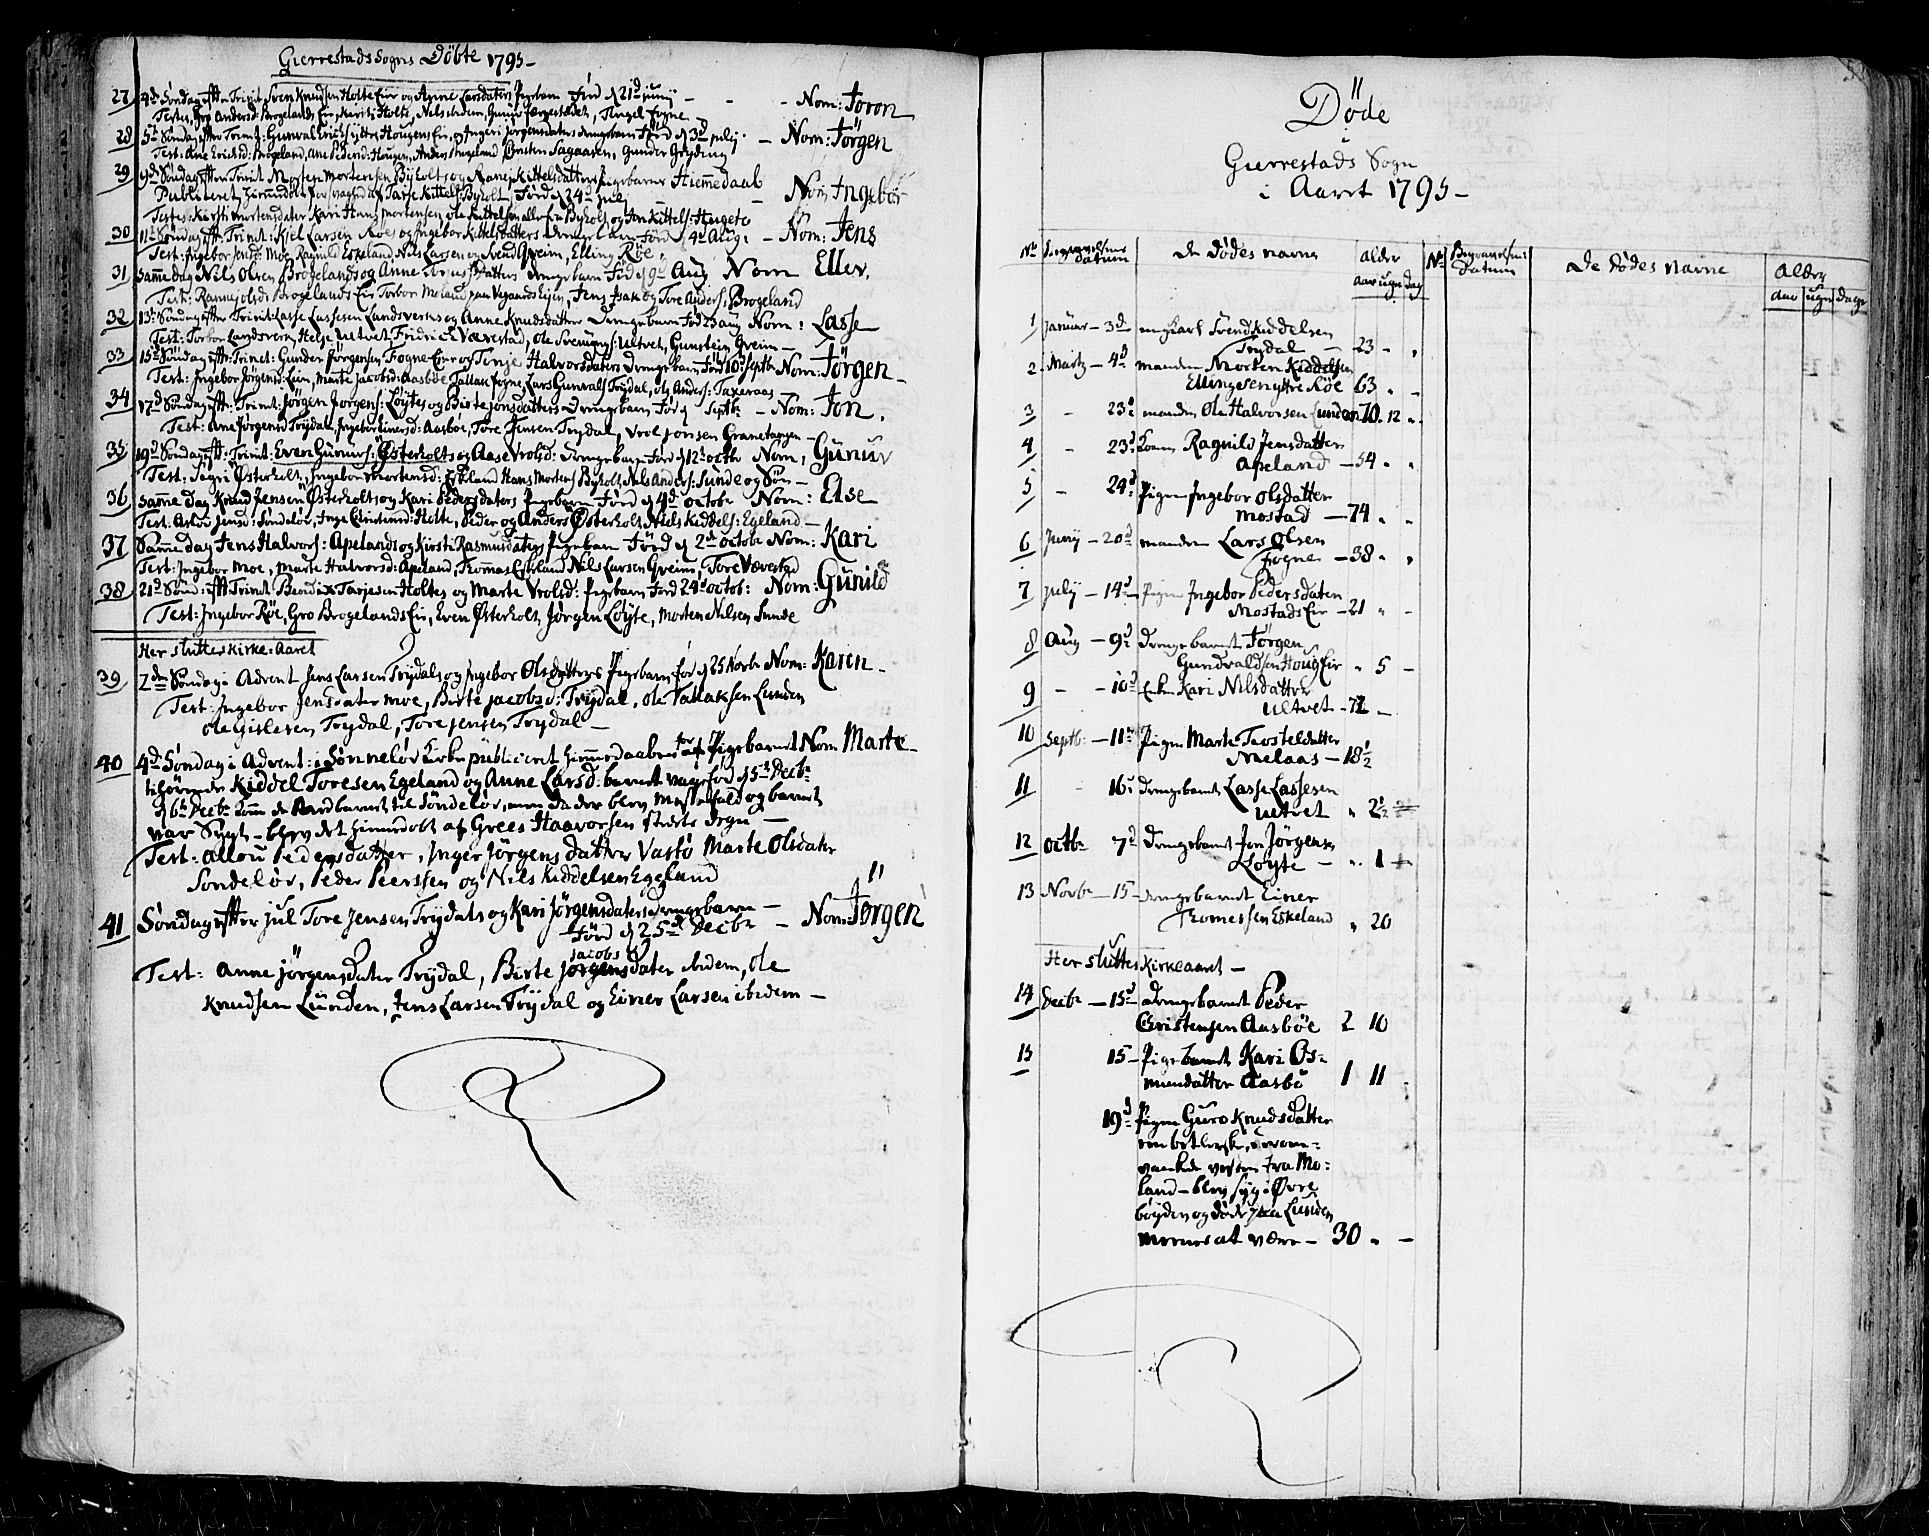 Gierrestads Sogns Døbte 1795 -
27 4de Søndag efter Trinit. Sven Knudsen Holte Eie og Anne Larsdatters Pigebarn Fød d 21d Junij - Nom: Joron
Testes, Gro Andersd: Brogelands Eie, Kirsti Holte, Nils ibidem, Gunur Færgestædet, Tingel Fogne -
28 5te Søndag efter Trinit: Gunval Erichs: yttre Hougens Eie, og Ingeri Jørgensdaters drengebarn Fød d 3d Julij - Nom: Jørgen
Test: Ane Erichsd: Brogeland, Ane Pedersd: Hougen, Anders Brogeland Carsten Sagaasen, Gunder Gryting
29 9de Søndag efter Trinit. Morten Mortensen Byholts og Kittelsdatters Pigebarns Hiemmedaab
Publiceret Tarje Kittels: Byholt, Fød d 24d July - Nom Ingebor
Testes: Kirsti Mortensdater Kari Hans Mortensen Ole Kittelsen alle fra Byholt og Jon Kittels: Haugeto
30 11te Søndag eft: Trinit: Kjel Larsen Røes og Ingebor Kittelsdatters drengebarn Fød 4d Aug: - Nom: Jens
Test: Ingebor Jensd: Moe, Ragnild Eskeland, Nils Larsen og Svend Qveim, Elling Røe.
31 Samme dag Nils Olsen Brogelands og Anne datters drengebarn Fød d 9d Aug Nom Ellev.
Test: Ranne Olsd: Brogelands Eie Torbor Moland paa Vegaards Eien, Jens Isak og Tore Anders: Brogeland
32 13de Søndag efter Trinit: Lasse Lassesen Landsverks og Anne Knudsdatters Drengebarn Fød 23 Aug Nom: Lasse
Test: Torbor Landsverk, Helje Ultvet Fridric Eie Væverstad, Ole Svenungs: Ultvet, Gunsten Qveim -
33 15de Søndag eft: Trinit: Gunder Jørgensen Fogne Eie og Tonje Halvorsdaters Drengebarn Fød 10d Septbr Nom: Jørgen -
Test: Ingebor Jørgensd: Lien, Marte Jacobsd: Aasbøe Tallak Fogne, Lars Gunvals: Trydal, Ole Anders: Taxeraas
34 17de Søndag eft: Trinit: Jørgen Jørgens: Løytes og Birte Jonsdatters Drengebarn Fød d Septbr - Nom: Jon.
Test: Ane Jørgensd Trydal, Ingebor Einersd: Aasboe, Tore Jensen Trydal, Vrol Jonsen Granetangen -
35 19de Søndag eft: Trinit: Even Gunurs: Østerholts og Aase Vrolsd: drengebarn Fød d 12d octb Nom: Gunur
Test: Sigri Østerholt, Ingebor Mortensd: Eskeland Hans Mortens: Byholt Nils Anders: Sunde og Søn -
36 Samme Dag Knud Jensen Østerholts og Kari Pedersdaters Pigebarn Fød d 4d octob Nom: Else
Test: Aslov Jensd: Søndeløv, Inge Christensd: Holte, Peder og Anders Østerholt, Niels Kiddels: Egeland -
37 Samme dag Jens Halvors: Apelands og Kirsti Rasmusdaters Pigebarn Fød d 2d octob Nom: Kari
Test: Ingebor Moe, Marte Halvorsd: Apeland, Thommas Eskeland Nils Larsen Qveim, Tore Væverstad
38 21de Sønd: eft: Trinit Bendix Tarjesen Holtes og Marte Vrolsd: Pigebarn Fød 24d octob: Nom: Gunild
Test: Ingebor Røe, Gro Brogelands Eie, Even Østerholt, Jørgen Løyte, Morten Nilsen Sunde
Her slutter Kirke-Aaret
39 2den Søndag i Advent Jens Larsen Trydals og Ingebor Olsdatters Pigebarn fød d 25 Novbr Nom: Karen -
Test: Ingebor Jensdater Moe, Birte Jacobsd: Trydal, Ole Tallaksen Lunden
Ole Gislesen Trydal, Tore Jensen Trydal -
40 4de Søndag i Advent: i Sønneløv Kirke publiceret Hiemmedaaben for af Pigebarnet Nom Marte -
tilhørende Kiddel Toresen Egeland og Anne Larsd: barnet var fød d 5te Decbr
d 6te Decbr kom de med barnet til Søndeløv, men da der blev Messefald og barnet
var Sygt - blev det hiemedøbt af Grees Haavorsen stædets degn -
Test: allou Pedersdatter, Inger Jørgensdatter Vasbø Marte Olsdater
Sondeløv, Peder Peersen og Nils Kiddelsen Egeland
41 Søndag efter Jul Tore Jensen Trydals og Kari Jørgensdaters drengebarn -
Fød d 25de Decbr - Nom: Jørgen
Test: Anne Jørgensdater Trydal, Birte Jacobs Jørgensdater ibidem, Ole
Knudsen Lunden, Jens Larsen Trydal og Einer Larsen ibidem -
Døde
i
Gierrestads Sogn
i Aaret 1795 -
No Begravelsens Datum De Dødes Navne Alder No Begravelsens Datum De Dødes Navne Alder
aar uger Dag aar uger dage
1 Januar - 3d ungkarl Svend Kiddelsen
Trydal - 23 "
2 Martz - 4d manden Morten Kiddelsen
Ellings Eie yttre Røe 63 "
3 - 23d manden Ole Halvorsen Lunden 70. 12 "
4 - 23d Konen Ragnild Jensdatter
Apeland - 54 " "
5 - 24d Pigen Ingebor Olsdatter
Mostad - 74 " "
6 Juny - 20d manden Lars Olsen
Fogne - 38 " "
7 July - 14d Pigen Ingebor Pedersdaten
Mostads Eie - 21 " -
8 Aug - 9d Drengebarnet Jørgen
Gundvaldsen Houg Eie " 5 -
9 - - 10d Enken Kari Nilsdatter
Ultvet - 72 -
10 Septb: - 11te Pigen Marte Terkeldatter
Mielaas - 18½
11 16d Drengebarnet Lasse Lassesen
Ultvet " 2½
12 octbr 7d Drengebarnet Jon Jørgensen
Løyte - " 1
13 Novbr - 15 - drengebarnet Einer
Thomessen Eskeland " 20
Her slutter Kirkeaaret -
14 Decbr - 15d drengebarnet Peder
Christensen Aasbøe 2 10
15 15 - Pigebarnet Kari Os=
mundatter Aasbø 1 11
19d Pigen Guro Knudsdatter
en betlerske, som
vankede vesten fra Mo=
land - blev syg i Øvre
bøyden og døde paa Lunden
menes at være - 30 " -